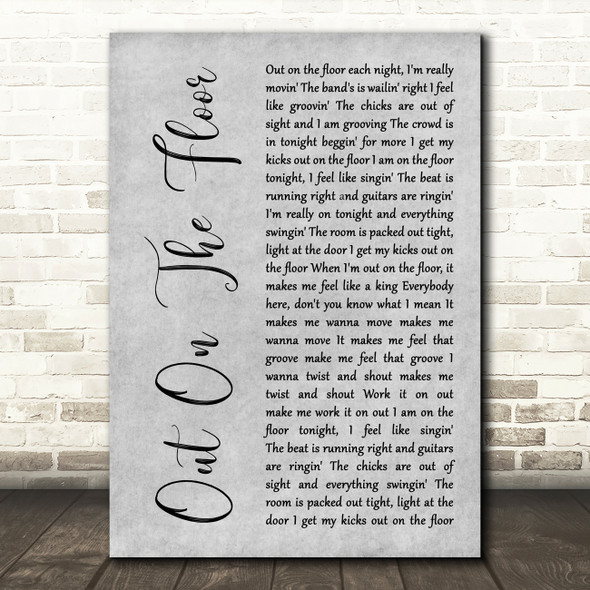 Out On The Floor
Out on the floor each night, I'm really
movin' The band's is wailin' right I feel
like groovin' The chicks are out of
sight and I am grooving The crowd is
in tonight beggin' for more I get my
kicks out on the floor I am on the floor
tonight, I feel like singin' The beat is
running right and guitars are ringin'
I'm really on tonight and everything
swingin' The room is packed out tight,
light at the door I get my kicks out on
the floor When I'm out on the floor, it
makes me feel like a king Everybody
here, don't you know what I mean It
makes me wanna move makes me
wanna move It makes me feel that
groove make me feel that groove I
wanna twist and shout makes me
twist and shout Work it on out
make me work it on out I am on the
floor tonight, I feel like singin'
The beat is running right and guitars
are ringin' The chicks are out of
sight and everything swingin' The
room is packed out tight, light at the
door I get my kicks out on the floor